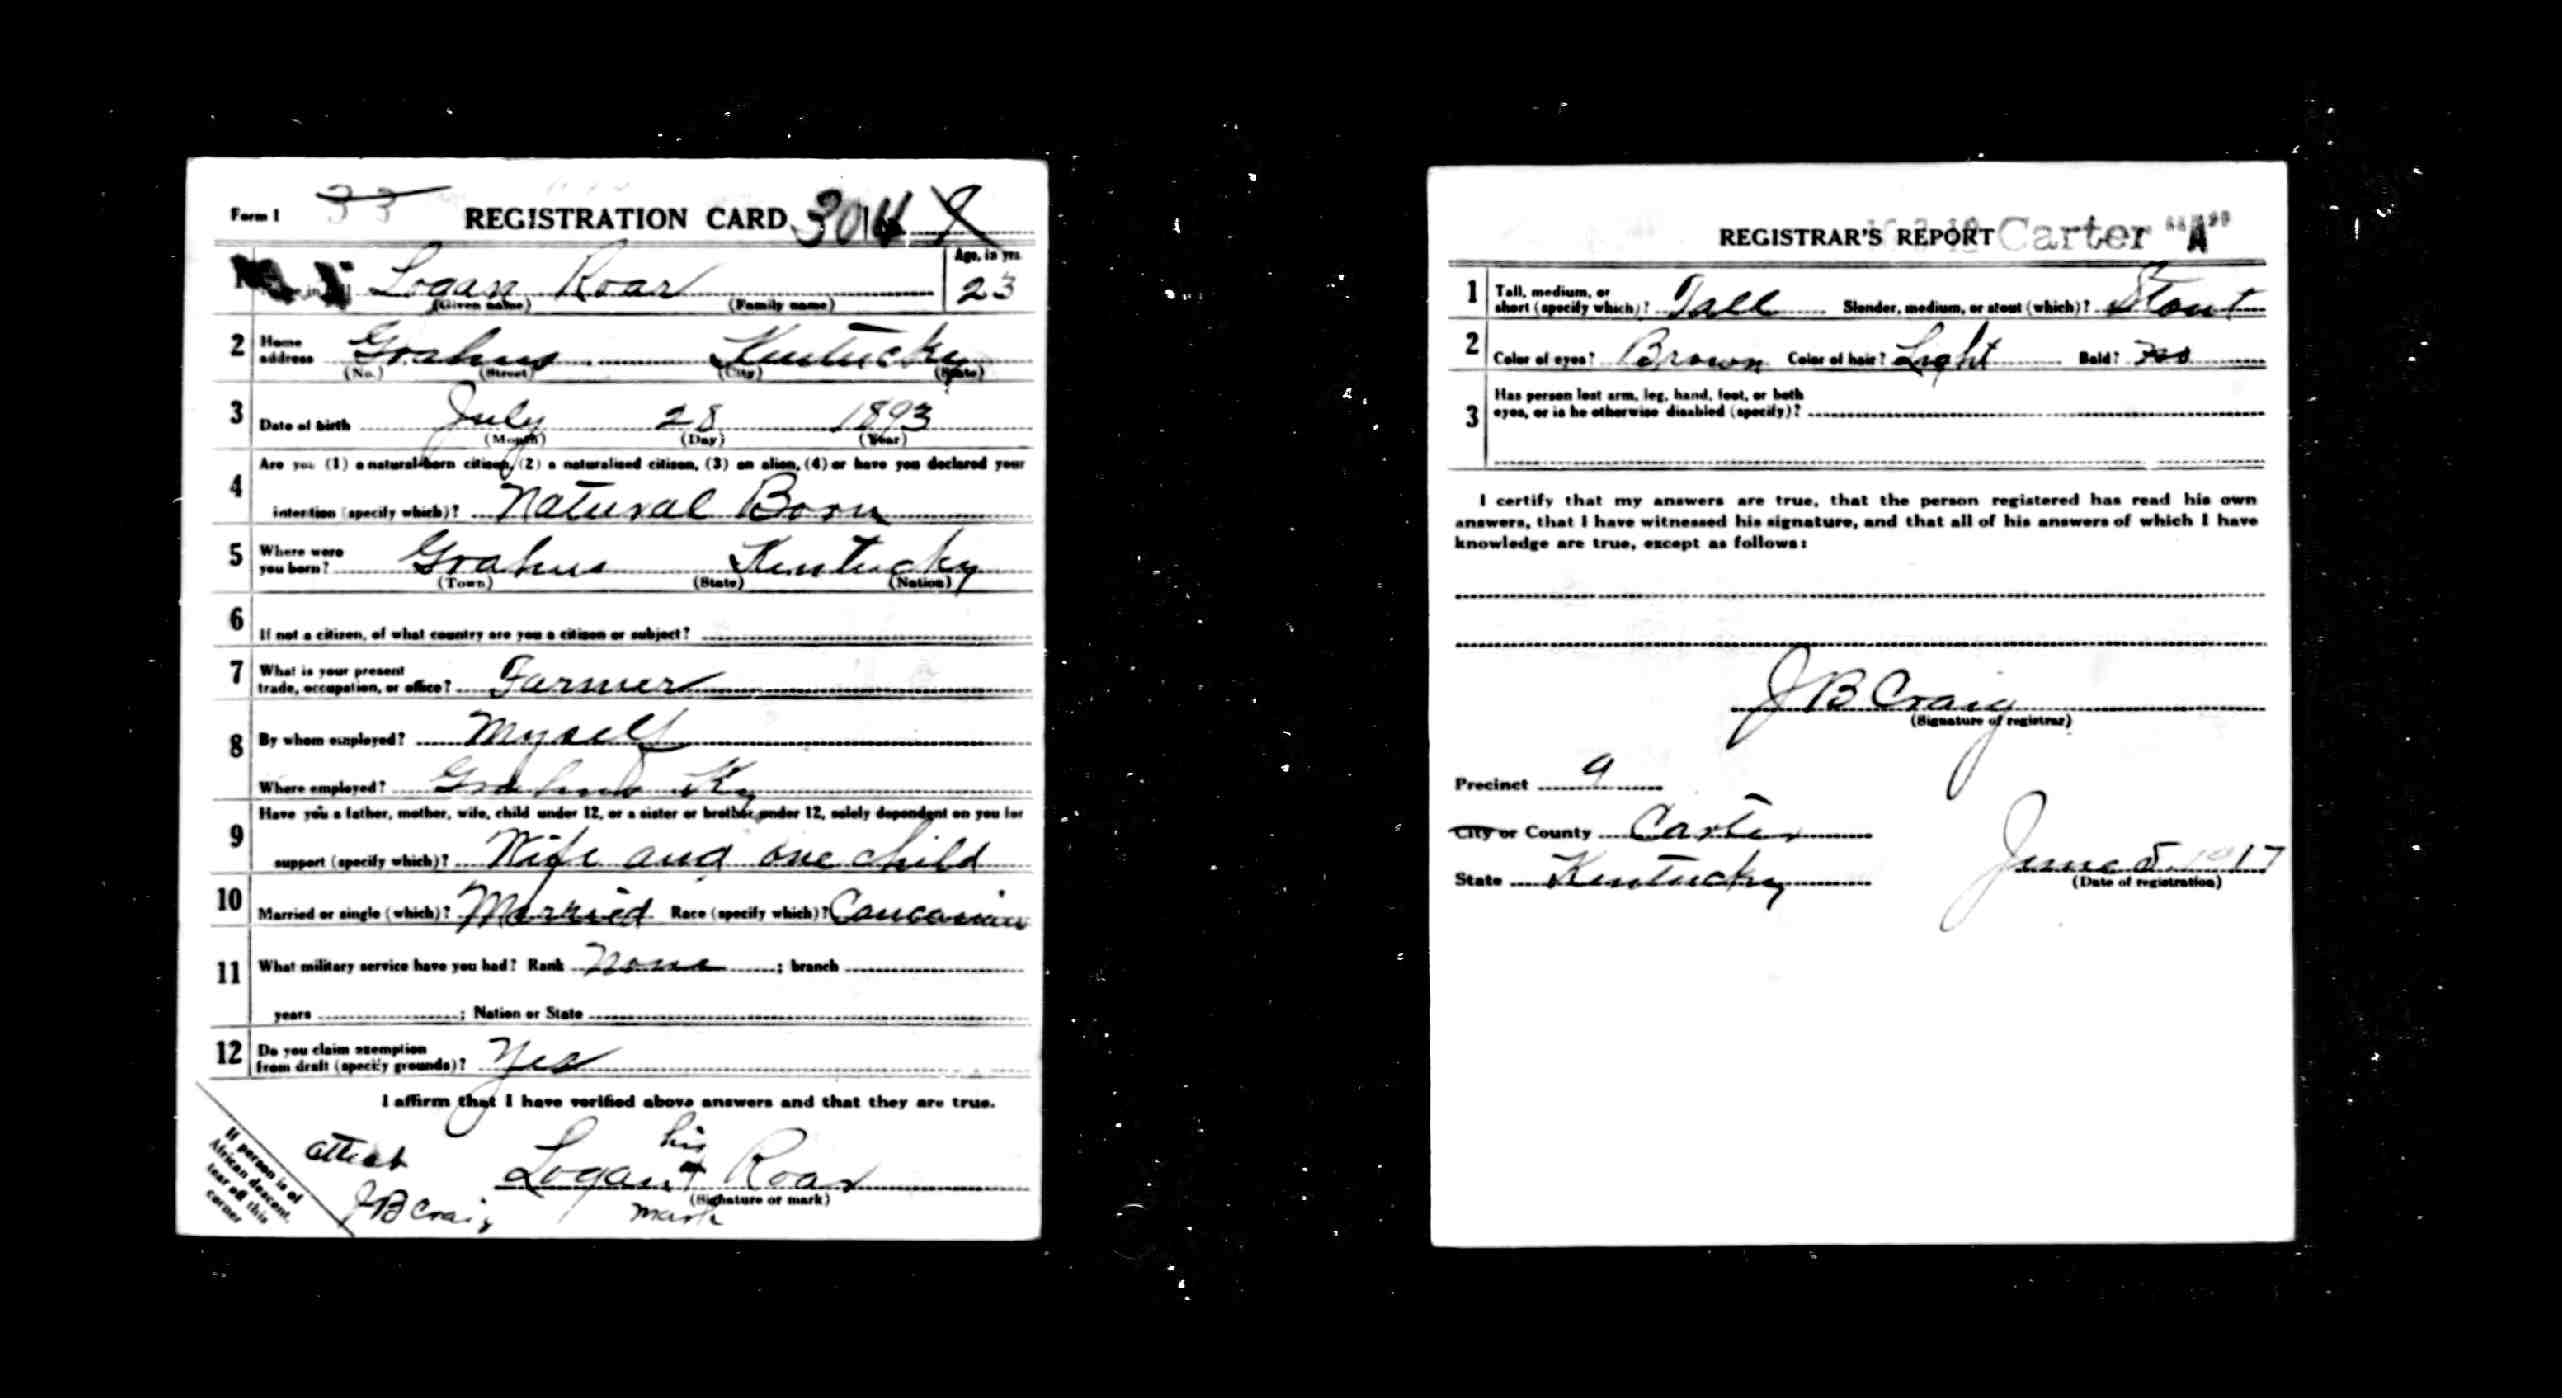 Form 1 33 REGISTRATION CARD 3014
1 Logan Roar Age, in yrs. 23
(Given name) (Family name)
2 Home address Grahns Kentucky
(No.) (Street) (City) (State)
3 Date of birth July 28 1893
(Month) (Day) (Year)
4 Are you (1) a natural-born citizen, (2) a naturalized citizen, (3) an alien, (4) or have you declared your
intention (specify which)? Natural Born
5 Where were you born? Grahns Kentucky
(Town) (State) (Nation)
6 If not a citizen, of what country are you a citizen or subject?
7 What is your present
trade, occupation, or office? Farmer
8 By whom employed? Myself
Where employed? Grahns Ky
9 Have you a father, mother, wife, child under 12, or a sister or brother under 12, solely dependent on you for
support (specify which)? Wife and one child
10 Married or single (which)? Married Race (specify which)? Caucasian
11 What military service have you had? Rank None ; branch
years ; Nation or State
12 Do you claim exemption
from draft (specify grounds)? Yes
I affirm that I have verified above answers and that they are true.
his
attest Logan x Roar
(Signature or mark)
J B Craig mark
If person is of
African descent,
tear off this
corner
REGISTRAR'S REPORT Carter A
1 Tall, medium, or
short (specify which)? Tall Slender, medium, or stout (which)? Stout
2 Color of eyes? Brown Color of hair? Light Bald?
3 Has person lost arm, leg, hand, foot, or both
eyes, or is he otherwise disabled (specify)?
I certify that my answers are true, that the person registered has read his own
answers, that I have witnessed his signature, and that all of his answers of which I have
knowledge are true, except as follows:
J B Craig
(Signature of registrar)
Precinct 9
City or County Carter
State Kentucky June 5 1917
(Date of registration)